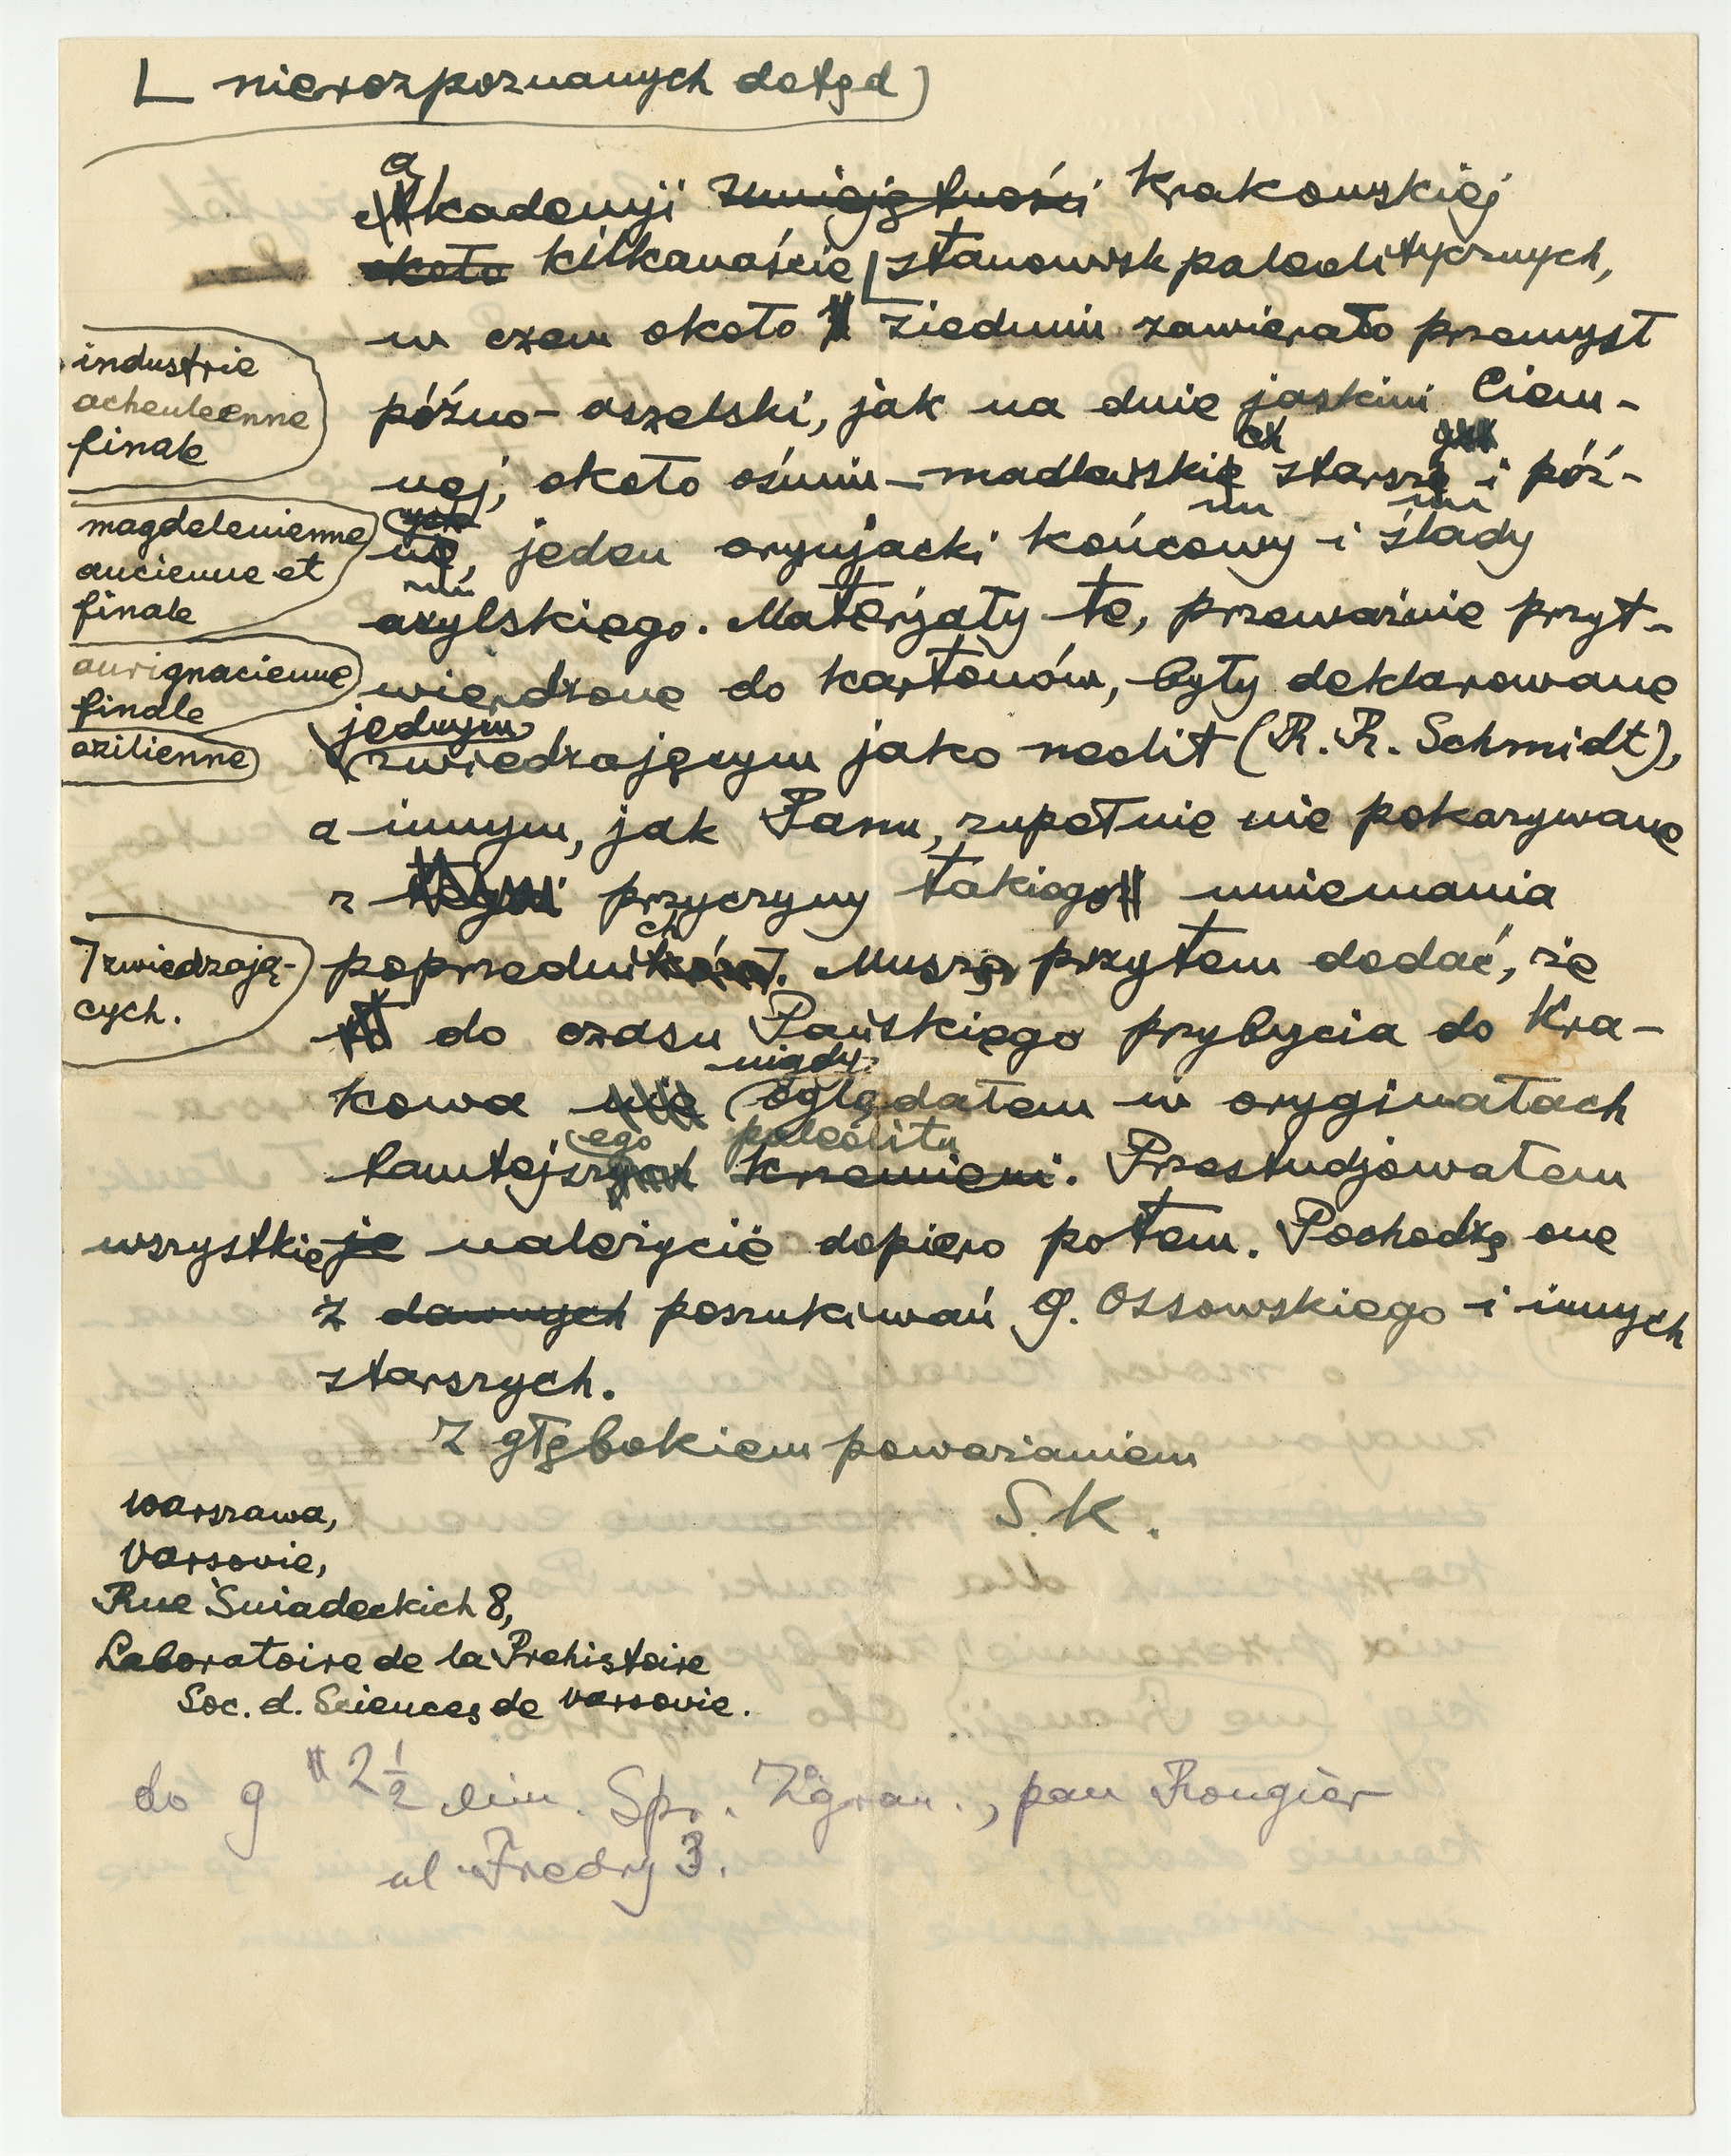 nierozpoznanych dotąd
akademji Umiejętności Krakowskiej
około kilkanaście stanowisk paleolitycznych,
w czem około siedmiu zawierało przemysł
industrie
acheuleenne
finale
późno-aszelski, jak na dnie jaskini Ciem-
nej, około ośmiu - madleńskich starszych i póź-
magdelenienne
ancienne et
finale
nych, jeden oryniacki końcowy i ślady
azylskiego. Materjały te, przeważnie przyt-
aurignacienne
finale
azilienne
wierdzone do kartonów, były deklarowane
jednym
zwiedzającym jako neolit (R. R. Schmidt),
a innym, jak Panu, zupełnie nie pokazywane
z przyczyny takiego mniemania
zwiedzają-
cych.
poprzednich. Muszę przytem dodać, że
do czasu Pańskiego przybycia do Kra-
kowa nie nigdy oglądałem w oryginałach
tamtejszego paleolitu krzemieni. Przestudjowałem
wszystkie je należycie dopiero potem. Pochodzą one
z dawnych poszukiwań G. Ossowskiego i innych
starszych.
Z głębokiem poważaniem
S.K.
Warszawa,
Varsovie,
Rue Śniadeckich 8,
Laboratoire de la Prehistoire
Soc. d. Sciences de Varsovie.
do g 2½ Spr. Zagran., pan Rougier
ul Fredry 3.